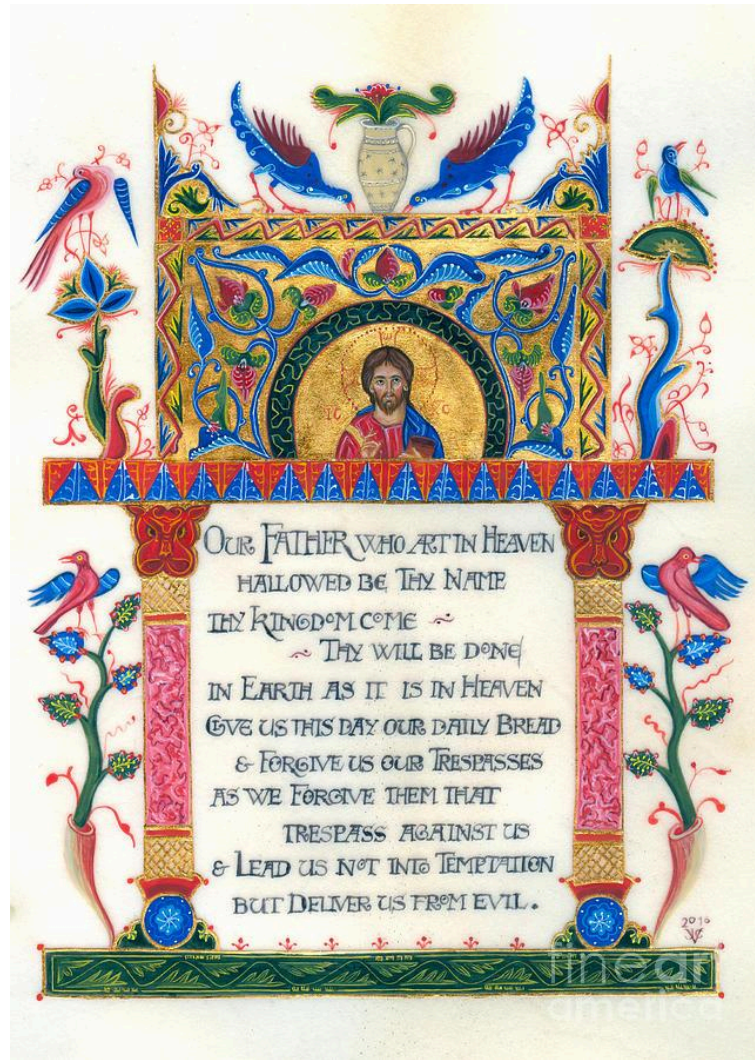 IC C
OUR FATHER WHO ART IN HEAVEN
HALLOWED BE THY NAME
THY KINGDOM COME ~
~ THY WILL BE DONE
IN EARTH AS IT IS IN HEAVEN
GIVE US THIS DAY OUR DAILY BREAD
& FORGIVE US OUR TRESPASSES
AS WE FORGIVE THEM THAT
TRESPASS AGAINST US
& LEAD US NOT INTO TEMPTATION
BUT DELIVER US FROM EVIL.
2016
fine art
america